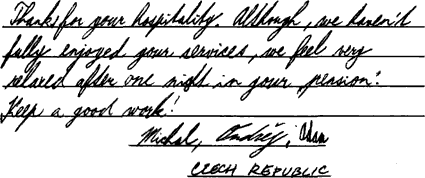 Thanks for your hospitality. Although, we haven't
fully enjoyed your services, we feel very
relaxed after one night in your pension!
Keep a good work!
Michal, Ondřej, Adam
CZECH REPUBLIC